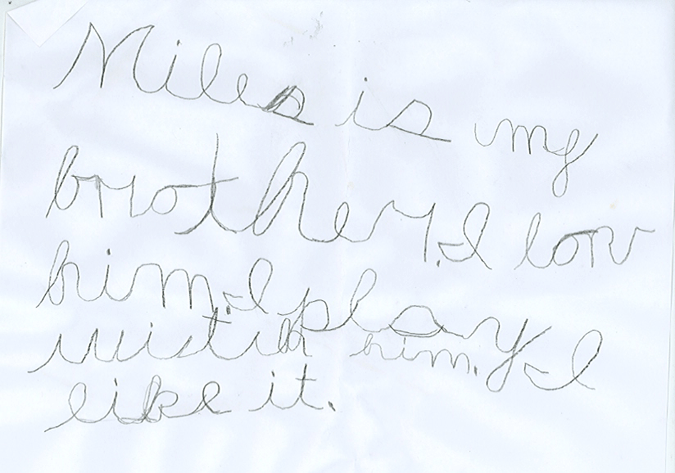 Miles is my
brother. I lov
him. I play
wistih him. I
like it.